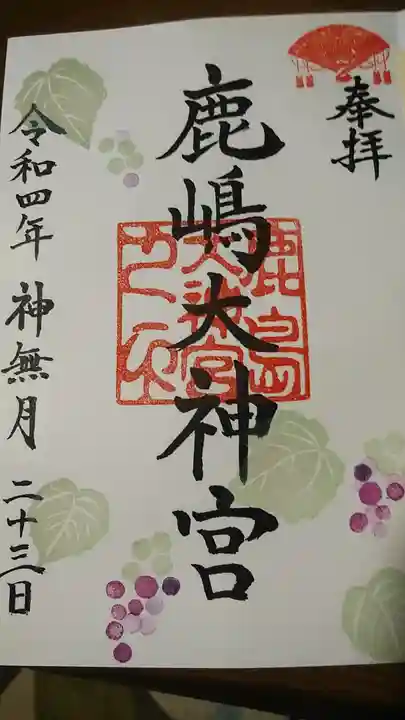 奉拝
鹿嶋大神宮
鹿島
大神宮
令和四年 神無月 二十三日